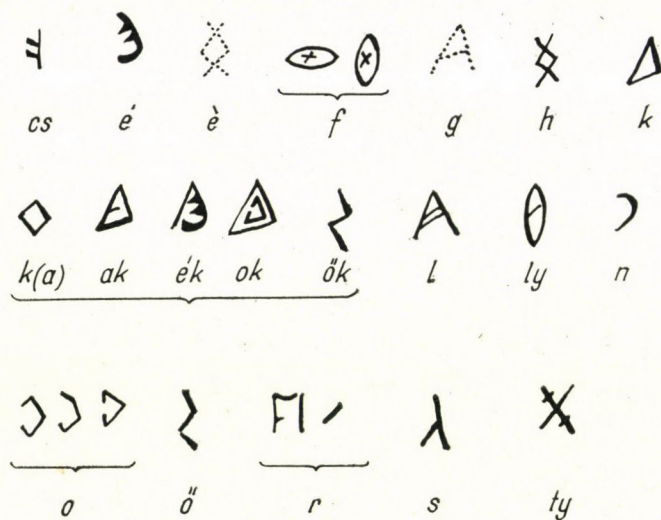 cs é è f g h k
k(a) ak ék ok ők l ly n
o ő r s ty